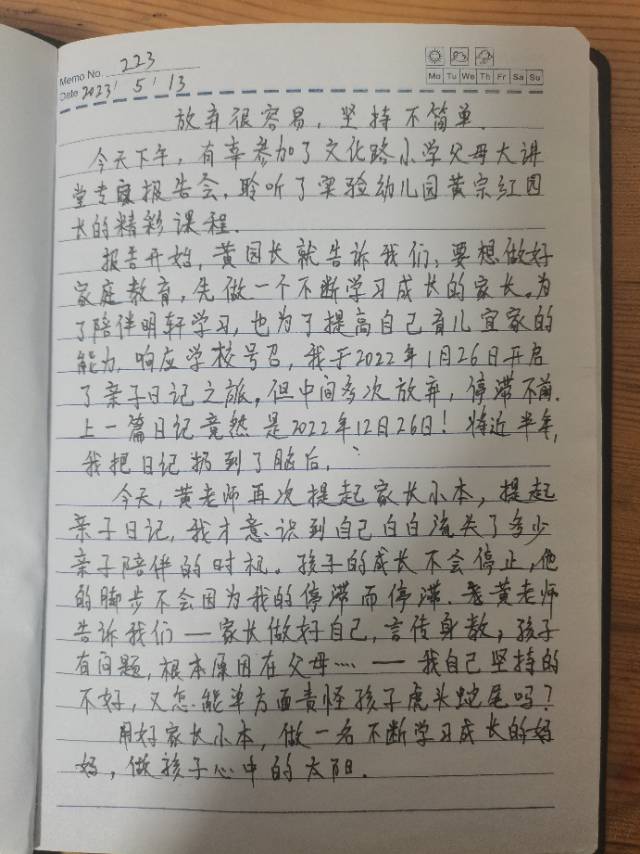 Memo No. 223
Mo Tu We Th Fr Sa Su
Date 2023' 5' 13
放弃很容易，坚持不简单.
今天下午，有幸参加了文化路小学父母大讲
堂专题报告会，聆听了实验幼儿园黄宗红园
长的精彩课程.
报告开始，黄园长就告诉我们，要想做好
家庭教育，先做一个不断学习成长的家长。为
了陪伴明轩学习，也为了提高自己育儿宜家的
能力，响应学校号召，我于2022年1月26日开启
了亲子日记之旅，但中间多次放弃，停滞不前.
上一篇日记竟然是2022年12月26日！将近半年，
我把日记扔到了脑后.
今天，黄老师再次提起家长小本，提起
亲子日记，我才意识到自己白白流失了多少
亲子陪伴的时机。孩子的成长不会停止，他
的脚步不会因为我的停滞而停滞.黄老师
告诉我们——家长做好自己，言传身教，孩子
有问题，根本原因在父母……——我自己坚持的
不好，又怎能单方面责怪孩子虎头蛇尾吗？
用好家长小本，做一名不断学习成长的妈
妈，做孩子心中的太阳.